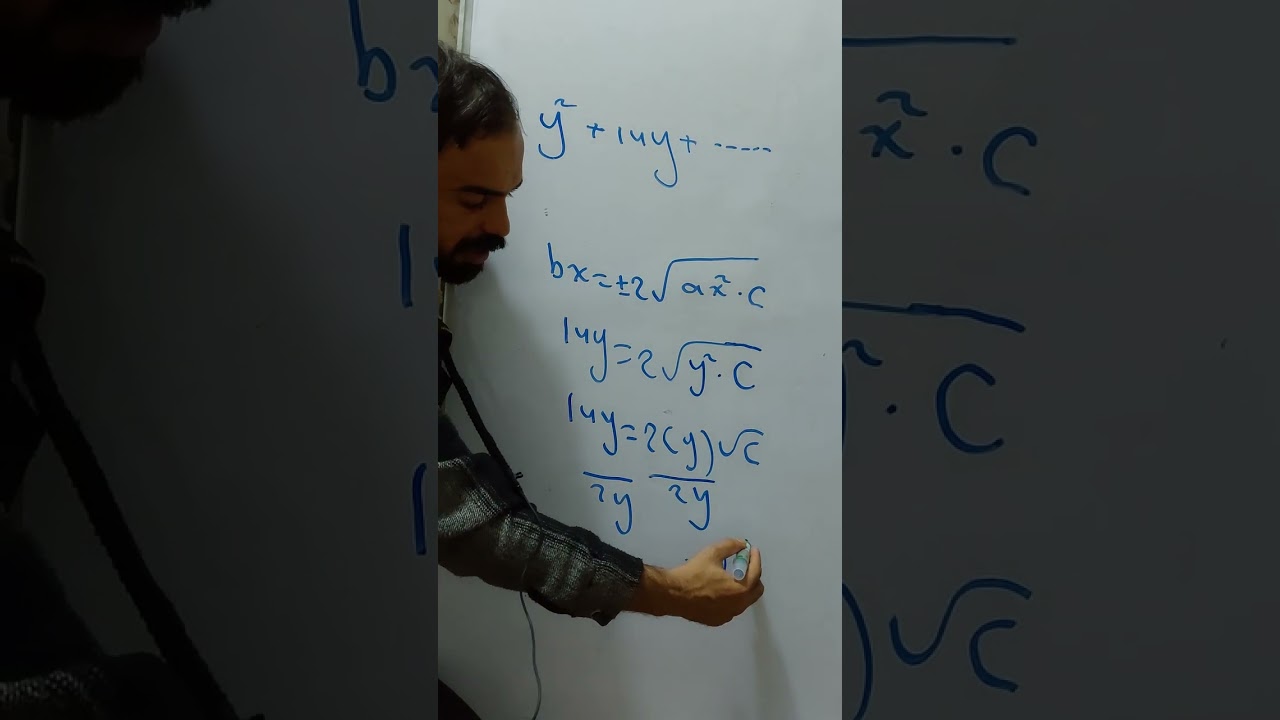 y² + 14y + ......
bx = ±2√ax² · c
14y = 2√y² · c
14y = 2(y)√c
2y 2y